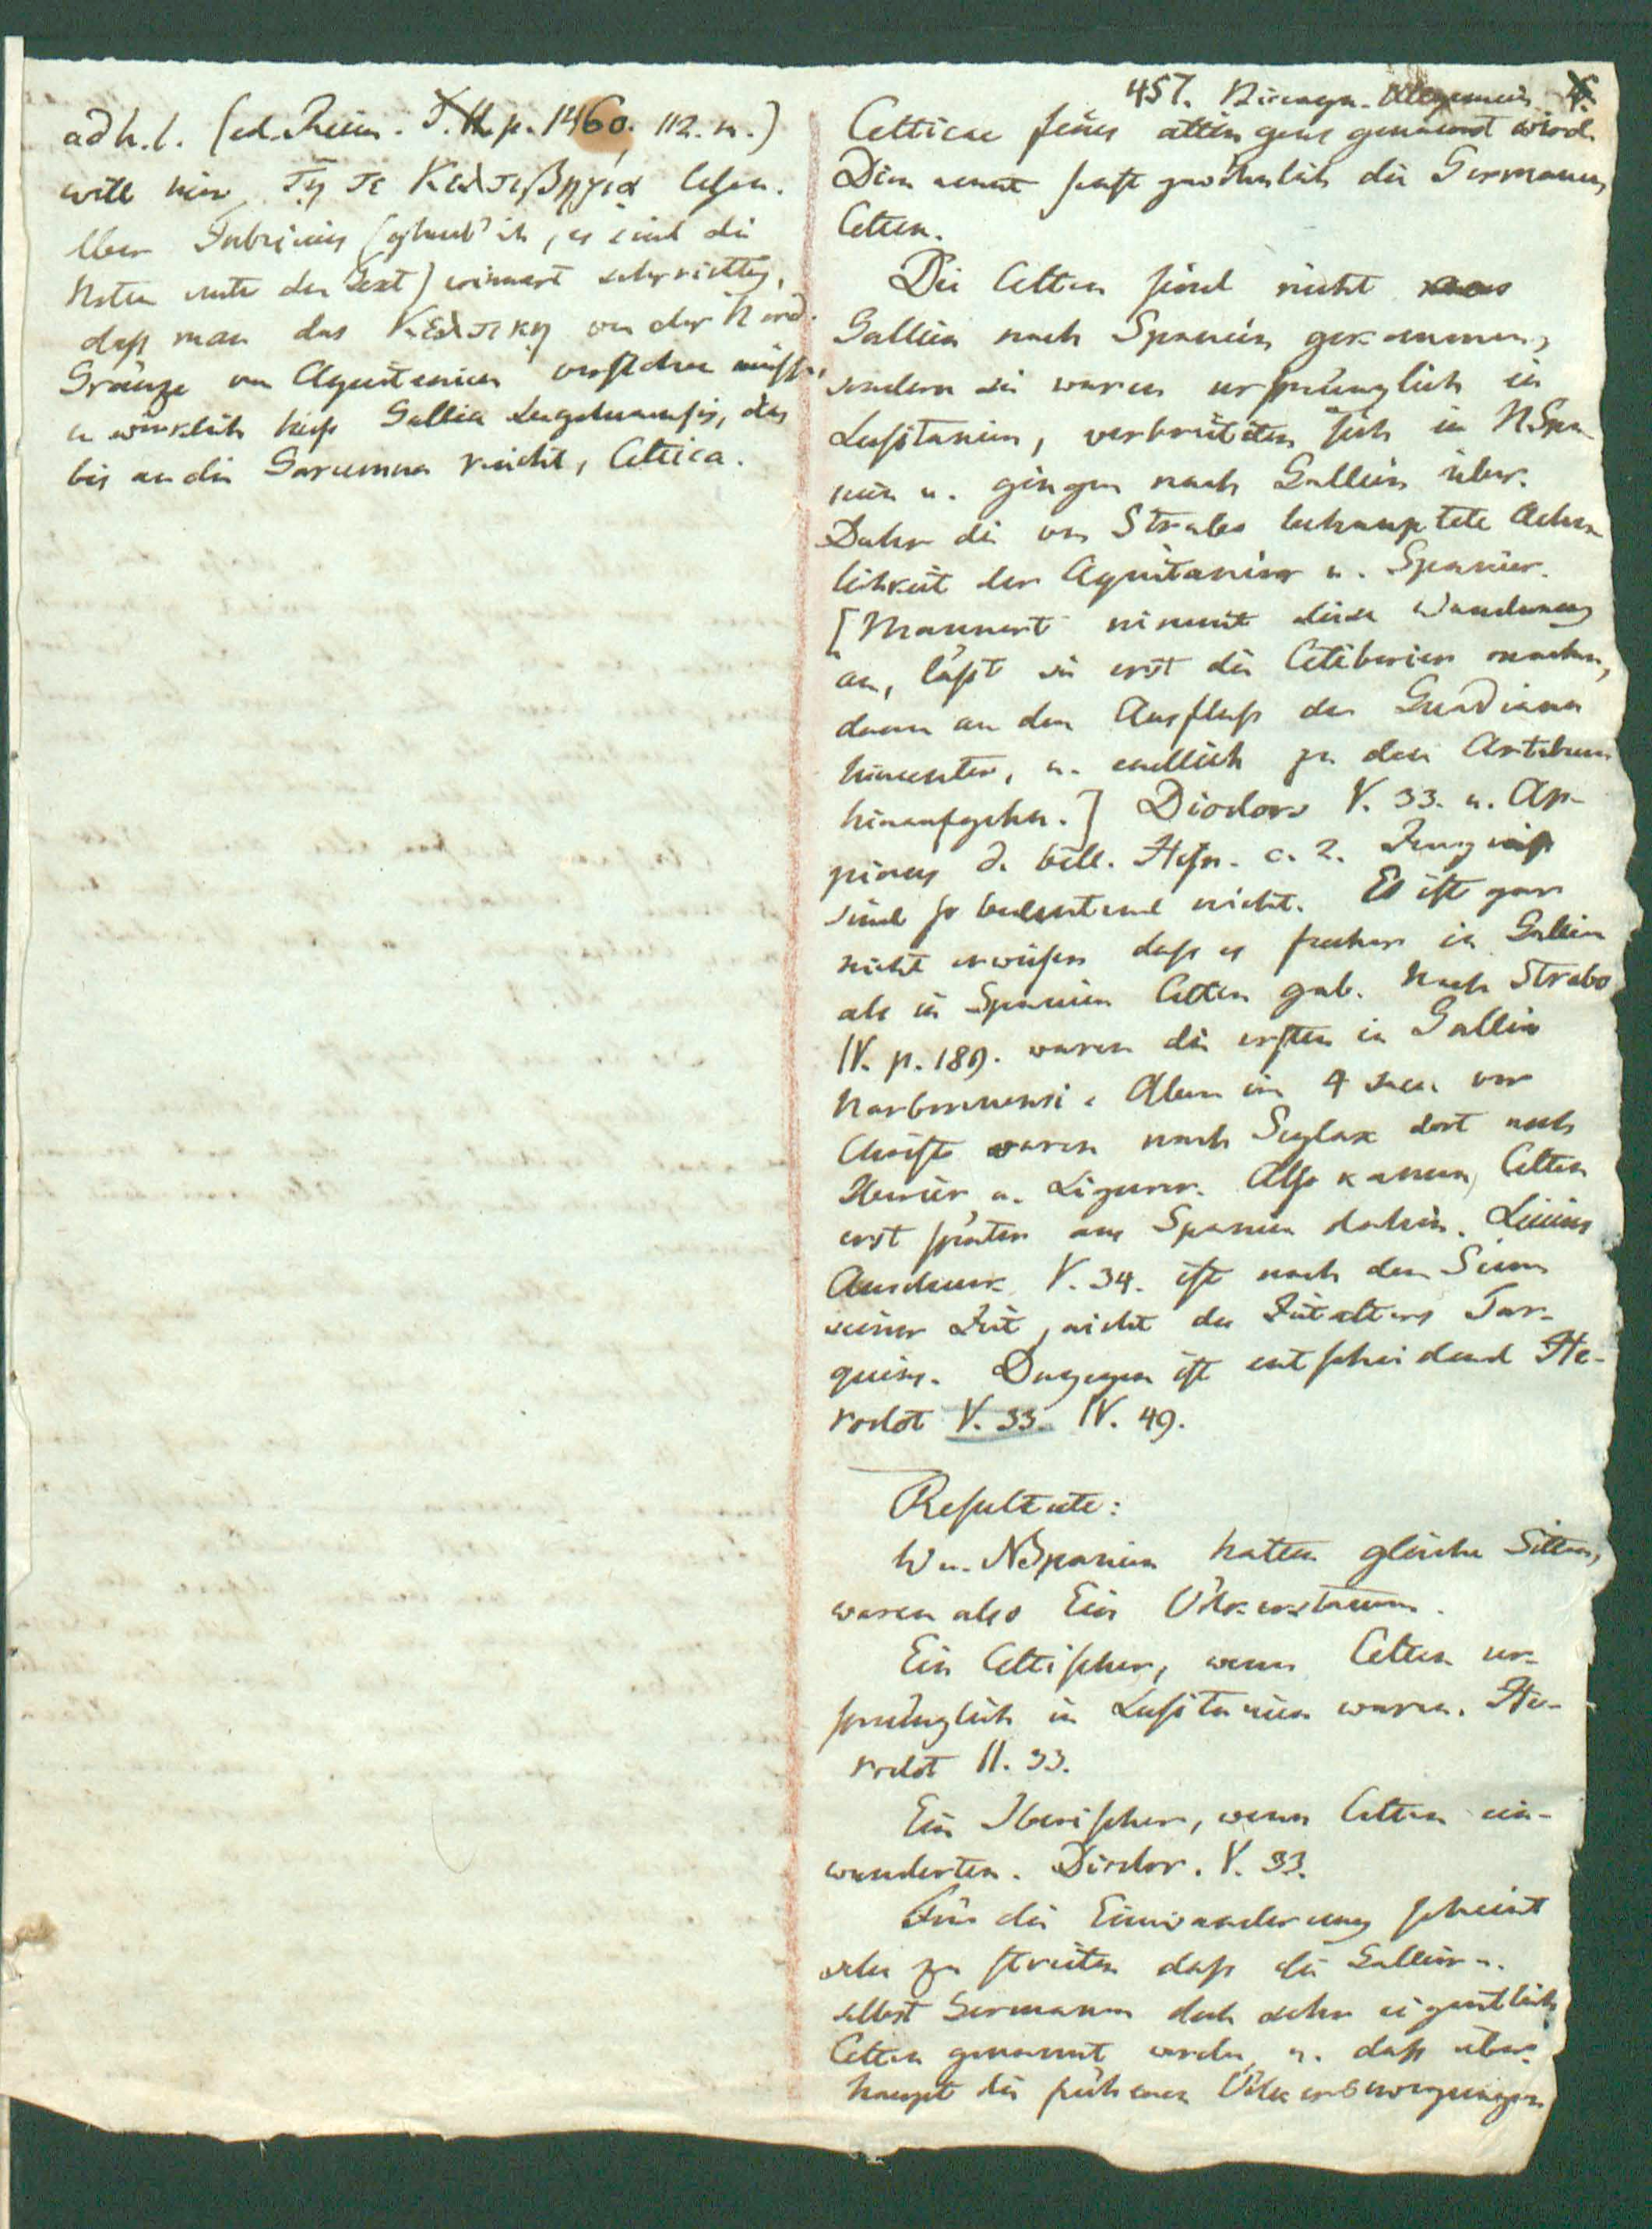 adh.l. (ed. Reim. T. II. p. 1460. 112. n.)
will hier τῃ τε Κελτιβηρίᾳ lesen.
Aber Fabricius (glaub' ich, es sind die
Noten unter dem Text) erinnert sehr richtig,
daß man das Κελτικη von der Nord-
Gränze von Aquitanien verstehen müsse,
u. wirklich hieß Gallia Lugdunensis, das
bis an die Garumna reicht, Celtica.
457. Allgemein
Celticae fines alten gens genannt wird.
Dion nennt sonst gewöhnlich die Germanen,
Celten.
Die Celten sind nicht aus
Gallien nach Spanien gekommen,
sondern sie waren ursprünglich in
Lusitanien, verbreiteten sich in N.Spa-
nien u. gingen nach Gallien über.
Daher die von Strabo behauptete Aehn-
lichkeit der Aquitanier u. Spanier.
[Mannert nimmt diese Wanderung
an, läßt sie erst die Celtiberier machen,
dann an den Ausfluß der Guadiana
hinunter, u. endlich zu den Artabrern
hinaufgehn.] Diodors V. 33. u. Ap-
pians d. bell. Hisp. c. 2. Zeugniß
sind so bedeutend nicht. Es ist gar
nicht erwiesen daß es früher in Gallien
als in Spanien Celten gab. Nach Strabo
IV. p. 189. waren die ersten in Gallia
Narbonnensi. Allein im 4 saec. vor
Christo waren nach Scylax dort noch
Iberier u. Ligurer. Also kamen Celten
erst später aus Spanien dahin. Livius
Ausdruck V. 34. ist nach dem Sinn
seiner Zeit, nicht des Zeitalters Tar-
quins. Dagegen ist entscheidend He-
rodot V. 33. IV. 49.
Resultate:
W u. NSpanien hatten gleiche Sitten,
waren also Ein Völkerstamm.
Ein Celtischer, wenn Celten ur-
sprünglich in Lusitanien waren. He-
rodot II. 33.
Ein Iberischer, wenn Celten ein-
wanderten. Diodor. V. 33.
Für die Einwanderung scheint
sehr zu streiten daß die Gallier u.
selbst Germanen doch sehr eigentlich
Celten genannt werden, u. daß über-
haupt die früheren Völkerbewegungen